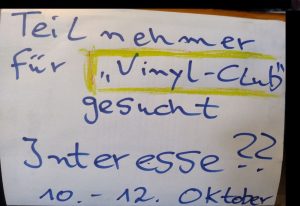 Teilnehmer
für „Vinyl-Club“
gesucht
Interesse??
10.-12. Oktober